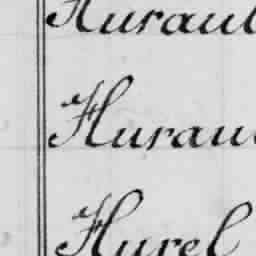 Huraul
Hurau
Hurel